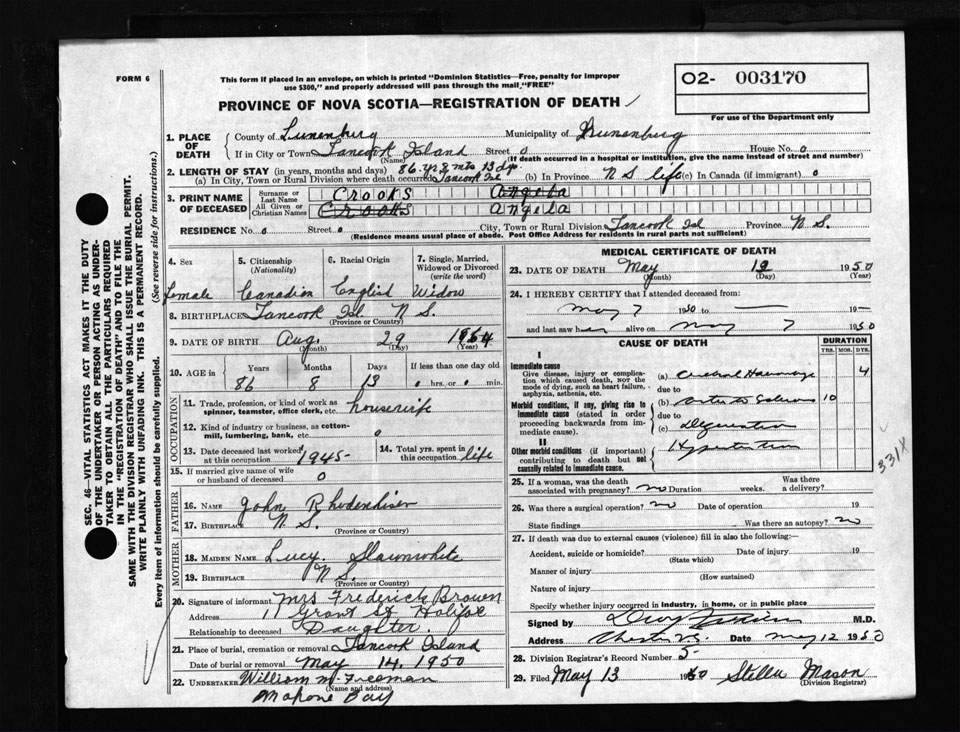 FORM 6
This form if placed in an envelope, on which is printed "Dominion Statistics—Free, penalty for improper
use $300," and properly addressed will pass through the mail "FREE"
O2- 003170
For use of the Department only
PROVINCE OF NOVA SCOTIA—REGISTRATION OF DEATH
1. PLACE OF DEATH
County of Lunenburg Municipality of Lunenburg
If in City or Town Tancook Island Street 0 House No. 0
(Name) (If death occurred in a hospital or institution, give the name instead of street and number)
2. LENGTH OF STAY (in years, months and days) 86 yrs 8 mts 13 dys.
(a) In City, Town or Rural Division where death occurred Tancook Isl (b) In Province N S life (c) In Canada (if immigrant) 0
3. PRINT NAME OF DECEASED
Surname or Last Name Crooks Angela
All Given or Christian Names Crooks Angela
RESIDENCE No. 0 Street 0 City, Town or Rural Division Tancook Isl Province N S.
(Residence means usual place of abode. Post Office Address for residents in rural parts not sufficient)
4. Sex
Female
5. Citizenship (Nationality)
Canadian
6. Racial Origin
English
7. Single, Married, Widowed or Divorced (write the word)
Widow
8. BIRTHPLACE Tancook Isl. N S.
(Province or Country)
9. DATE OF BIRTH Aug. 29
(Month) (Day) (Year)
10. AGE in Years Months Days If less than one day old
86 8 13 0 hrs. or 0 min.
OCCUPATION
11. Trade, profession, or kind of work as spinner, teamster, office clerk, etc. housewife
12. Kind of industry or business, as cotton-mill, lumbering, bank, etc. 0
13. Date deceased last worked at this occupation 1945
14. Total yrs. spent in this occupation life
15. If married give name of wife or husband of deceased 0
FATHER
16. Name John Rhodenhiser
17. Birthplace N S.
(Province or Country)
MOTHER
18. MAIDEN NAME Lucy Slawnwhite
19. BIRTHPLACE N S.
(Province or Country)
20. Signature of informant Mrs Frederick Brown
Address Grant St Halifax
Relationship to deceased Daughter.
21. Place of burial, cremation or removal Tancook Island
Date of burial or removal May 14, 1950
22. UNDERTAKER William M. Freeman
(Name and address)
Mahone Bay
MEDICAL CERTIFICATE OF DEATH
23. DATE OF DEATH May 1950
(Month) (Day) (Year)
24. I HEREBY CERTIFY that I attended deceased from
May 7 1950 to — 19—
and last saw her alive on May 7 1950
CAUSE OF DEATH
DURATION
YRS. MOS. DYS.
I
Immediate cause
Give disease, injury or complication which caused death, not the mode of dying, such as heart failure, asphyxia, asthenia, etc.
(a) Cerebral Hemorrhage 4
due to
Morbid conditions, if any, giving rise to immediate cause (stated in order proceeding backwards from immediate cause).
(b) Arterio Sclerosis 10
due to
(c) Degeneration
II
Other morbid conditions (if important) contributing to death but not causally related to immediate cause.
Hypertension
331X
25. If a woman, was the death associated with pregnancy? no Duration weeks. Was there a delivery?
26. Was there a surgical operation? no Date of operation 19
State findings Was there an autopsy? no
27. If death was due to external causes (violence) fill in also the following:—
Accident, suicide or homicide? Date of injury 19
(State which)
Manner of injury
(How sustained)
Nature of injury
Specify whether injury occurred in industry, in home, or in public place
Signed by M.D.
Address Chester N.S. Date May 12 1950
28. Division Registrar's Record Number 5
29. Filed May 13 1950 Stella Mason
(Division Registrar)
SEC. 46 VITAL STATISTICS ACT MAKES IT THE DUTY
OF THE UNDERTAKER OR PERSON ACTING AS UNDER-
TAKER TO OBTAIN ALL THE PARTICULARS REQUIRED
IN THE "REGISTRATION OF DEATH" AND TO FILE THE
SAME WITH THE DIVISION REGISTRAR WHO SHALL ISSUE THE BURIAL PERMIT.
WRITE PLAINLY WITH UNFADING INK. THIS IS A PERMANENT RECORD.
Every item of information should be carefully supplied. (See reverse side for instructions.)